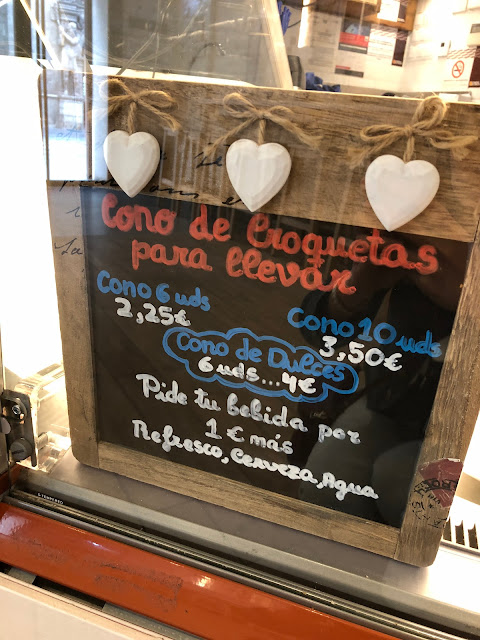 Cono de Croquetas
para llevar
Cono 6 uds
2,25€
Cono 10 uds
3,50€
Cono de Dulces
6 uds...4€
Pide tu bebida por
1€ más
Refresco, Cerveza, Agua